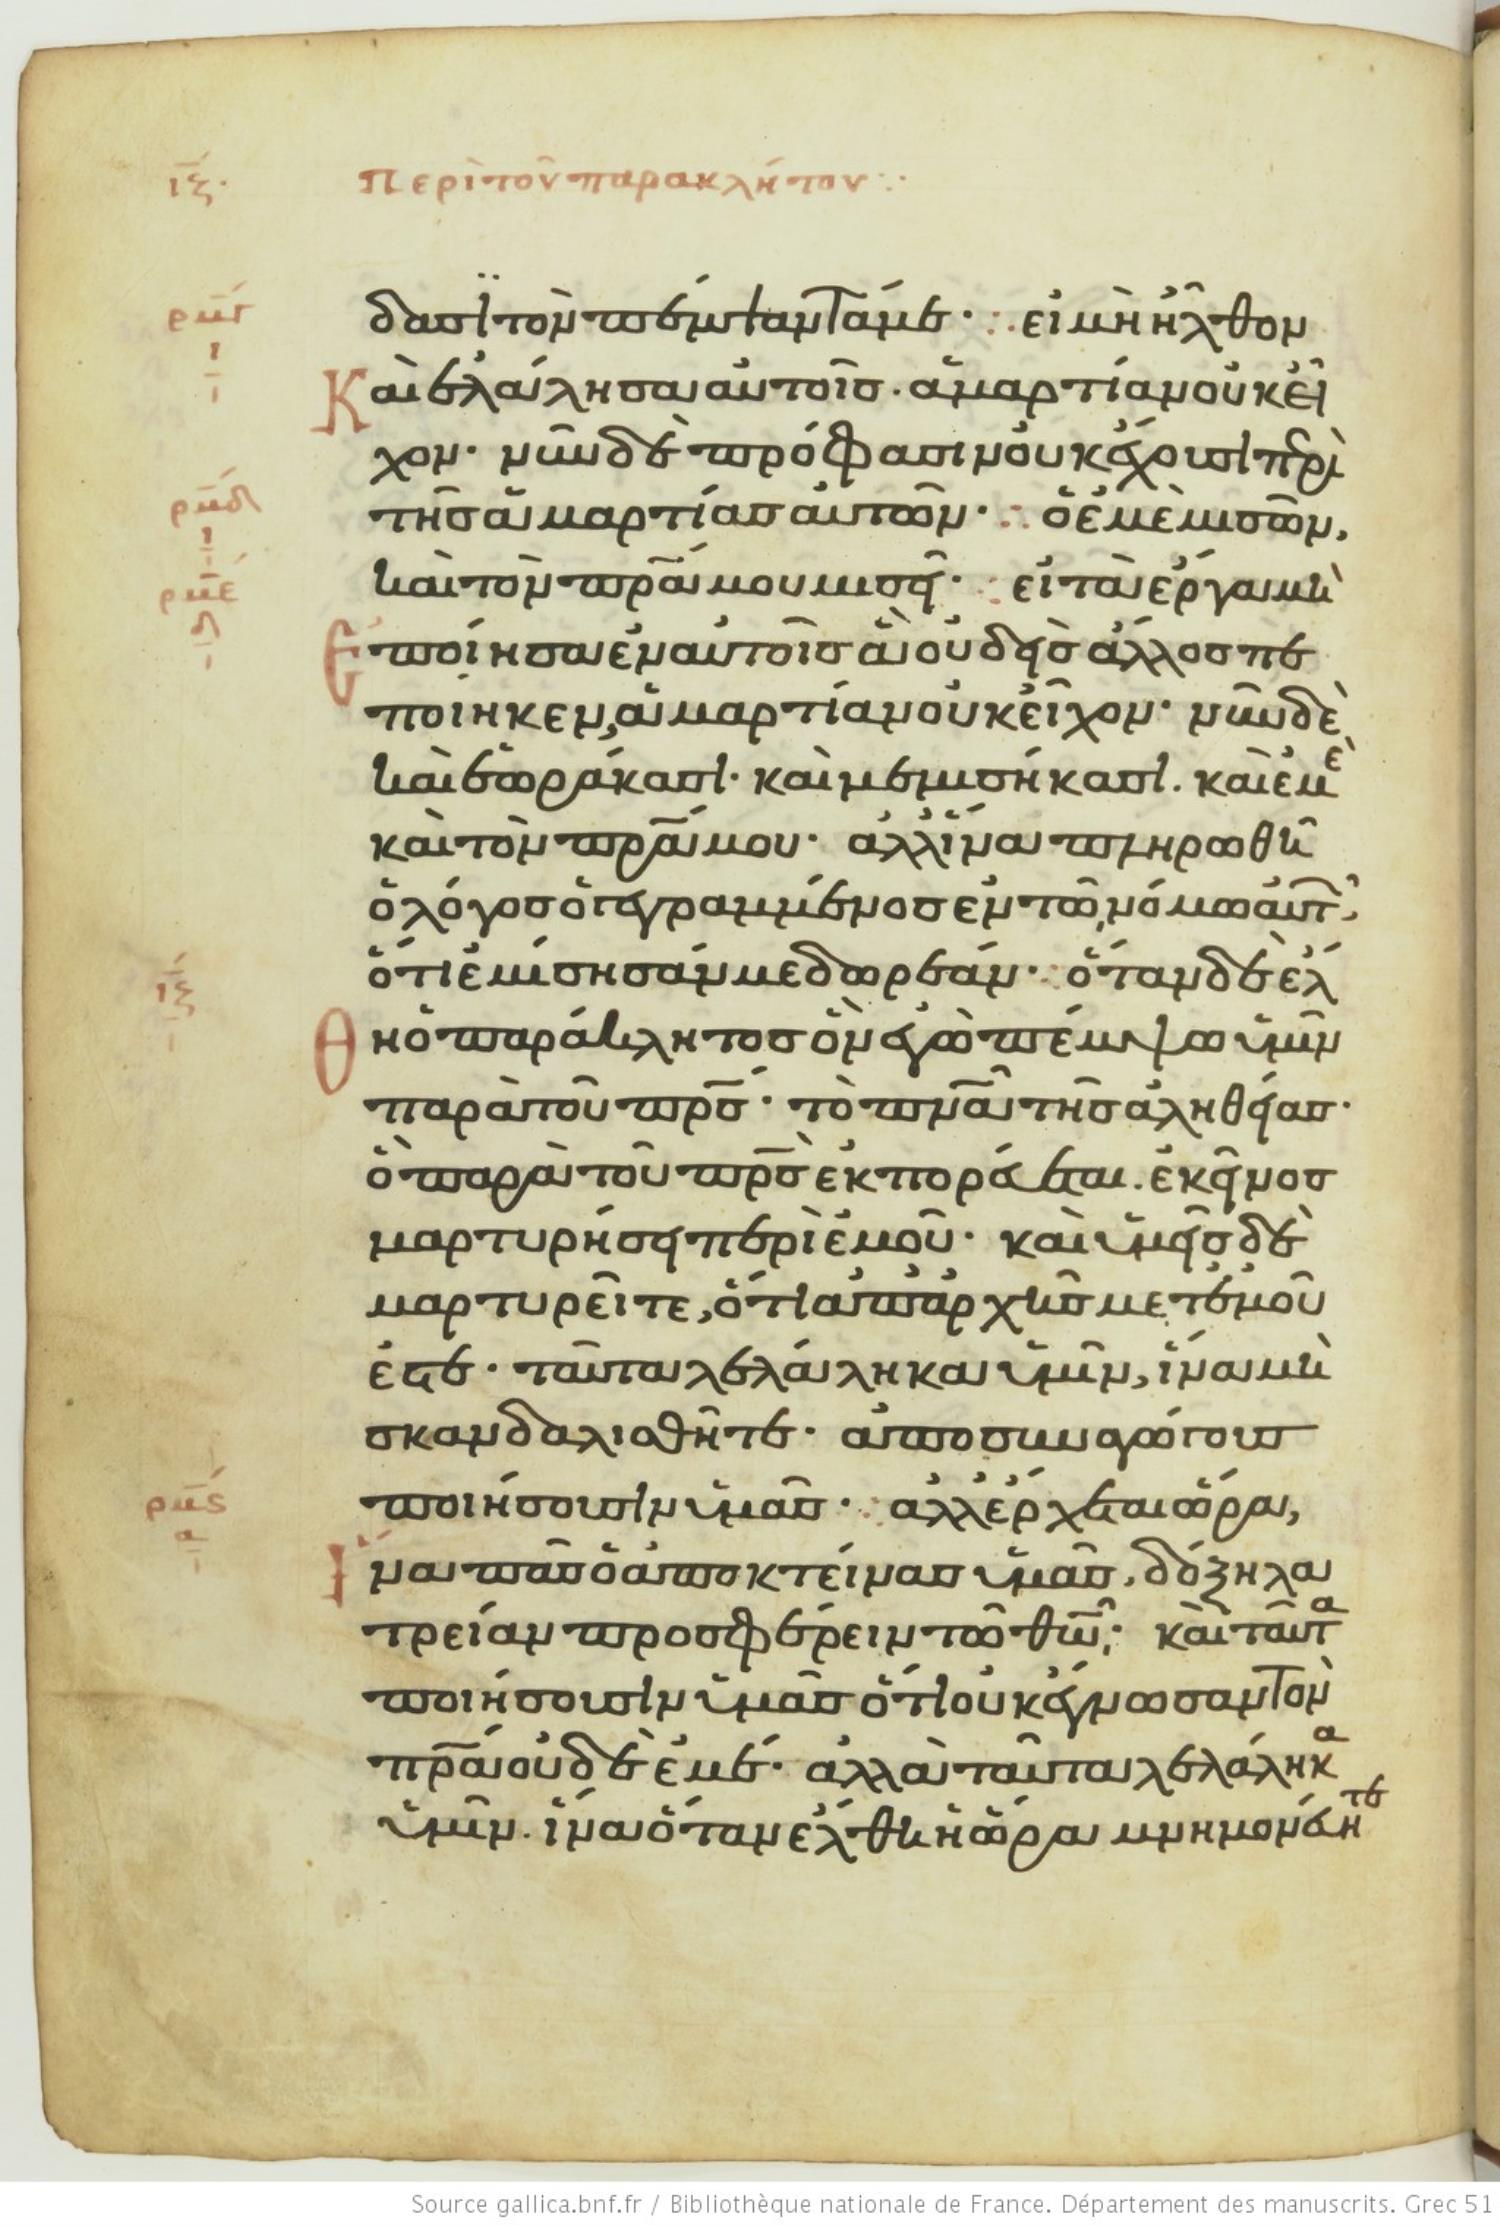 ιζ. Περὶ τοῦ παρακλήτου :·
ρμγ
ι
δασϊ τὸν πέμψαντά με· :· εἰ μὴ ἦλθον
Καὶ ἐλάλησα αὐτοῖς· ἁμαρτίαν οὐκ εἶ
χον· νῦν δὲ πρόφασιν οὐκ ἔχουσι περὶ
ρμδ
ι
τῆς ἁμαρτίας αὐτῶν· :· ὁ ἐμὲ μισῶν,
ρμε
καὶ τὸν πρ̅α μου μισεῖ· :· εἰ τὰ ἔργα μὴ
Ἐποίησα ἐν αὐτοῖς ἃ οὐδεὶς ἄλλος πε
ποίηκεν, ἁμαρτίαν οὐκ εἶχον· νῦν δὲ
καὶ ἑωράκασι· καὶ μεμισήκασι. καὶ ἐμὲ
καὶ τὸν πρ̅α μου· ἀλλ' ἵνα πληρωθῆ
ὁ λόγος ὁ γεγραμμένος ἐν τῶ νόμω αὐτ
ὅτι ἐμίσησάν με δωρεάν· :· ὅταν δὲ ἔλ
ιζ
Θη ὁ παράκλητος ὃν ἐγὼ πέμψω ὑμῖν
παρὰ τοῦ πρ̅ς· τὸ πν̅α τῆς ἀληθείας·
ὃ παρὰ τοῦ πρ̅ς ἐκπορεύεται. ἐκεῖνος
μαρτυρήσει περὶ ἐμοῦ· καὶ ὑμεῖς δὲ
μαρτυρεῖτε, ὅτι ἀπ' ἀρχῆς μετ' ἐμοῦ
ἐστε· ταῦτα λελάληκα ὑμῖν, ἵνα μὴ
σκανδαλισθῆτε· ἀποσυναγώγους
ρμς
α
ποιήσουσιν ὑμᾶς· :· ἀλλ' ἔρχεται ὥρα,
Ἵνα πᾶς ὁ ἀποκτείνας ὑμᾶς, δόξη λα
τρείαν προσφέρειν τῶ θω̅· καὶ ταῦτα
ποιήσουσιν ὑμᾶς ὅτι οὐκ ἔγνωσαν τὸν
πρ̅α οὐδὲ ἐμέ· ἀλλὰ ταῦτα λελάληκα
ὑμῖν. ἵνα ὅταν ἔλθη ἡ ὥρα μνημονεύητε
Source gallica.bnf.fr / Bibliothèque nationale de France. Département des manuscrits. Grec 51